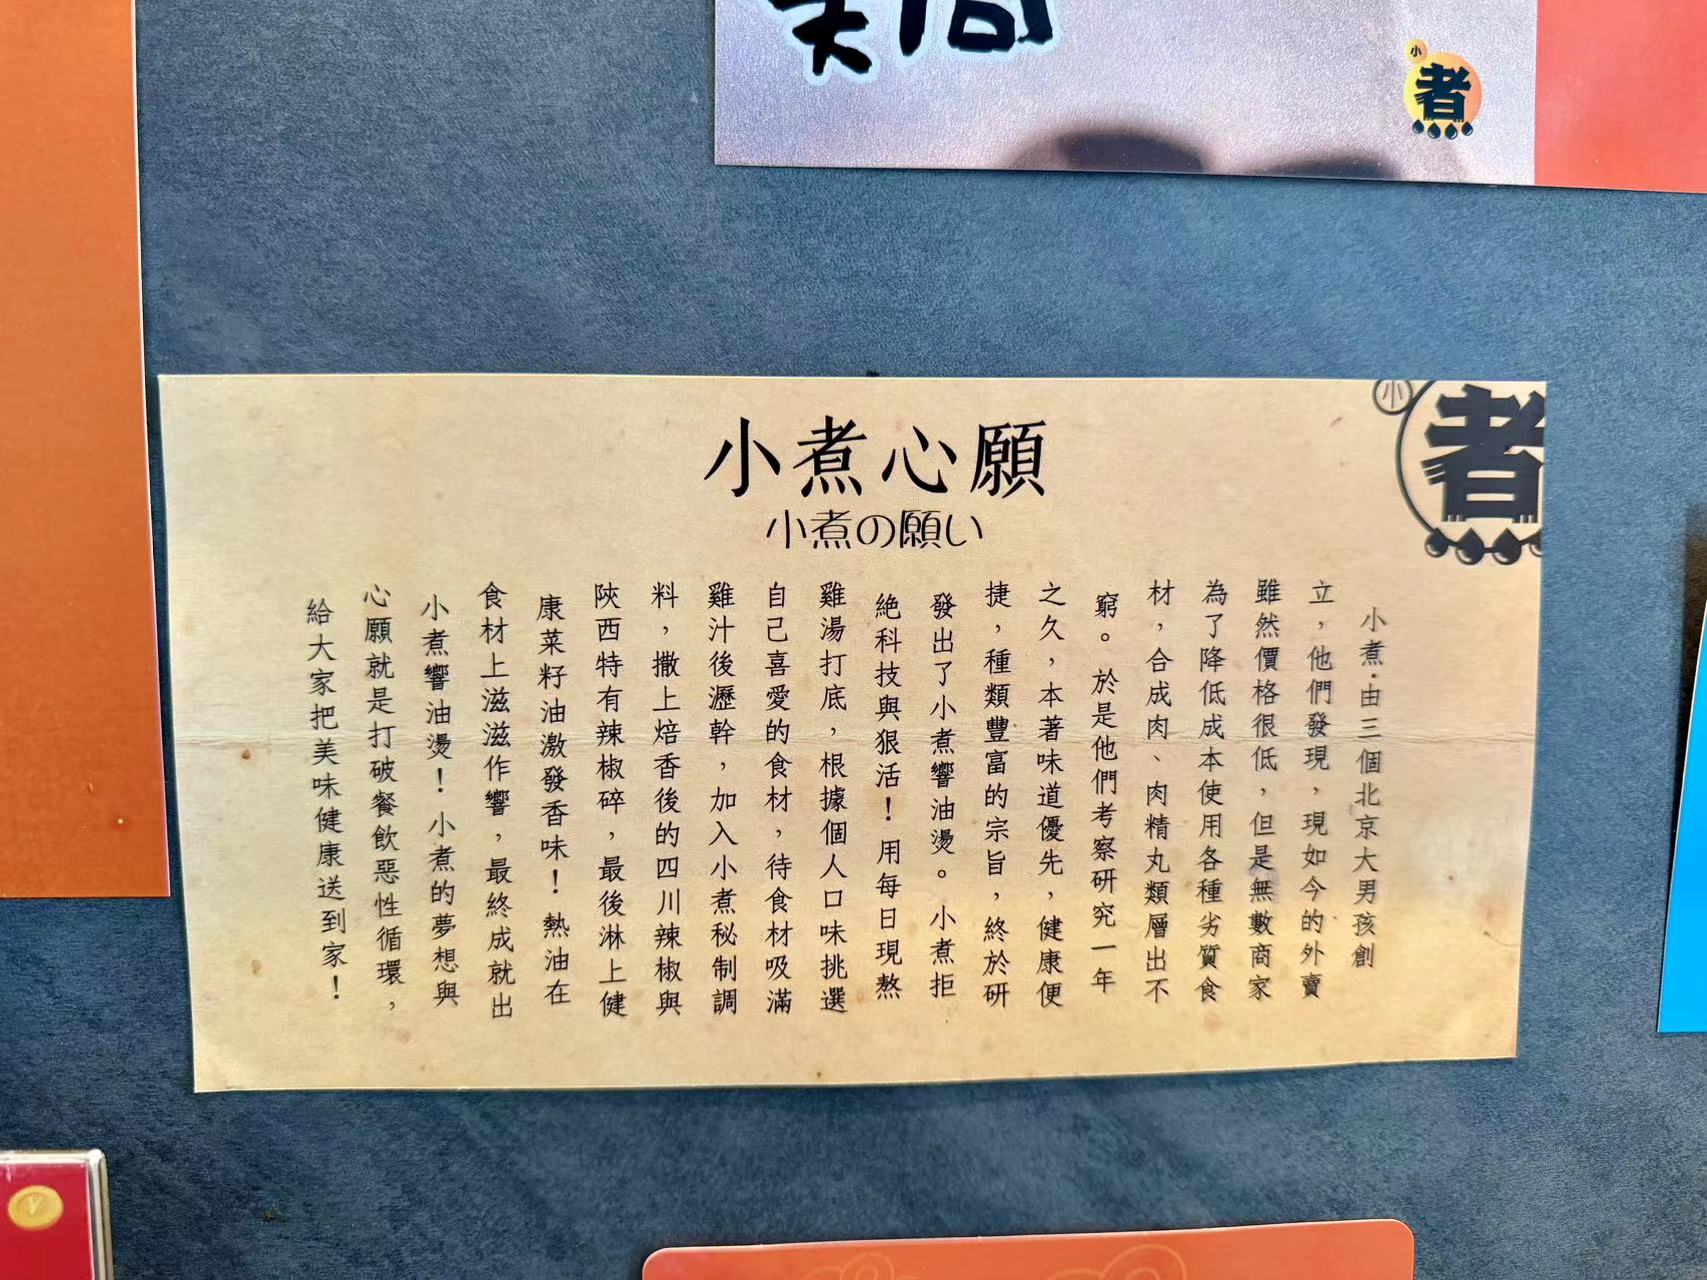 小
煮
小
煮
小煮心願
小煮の願い
小煮·由三個北京大男孩創
立，他們發現，現如今的外賣
雖然價格很低，但是無數商家
為了降低成本使用各種劣質食
材，合成肉、肉精丸類層出不
窮。於是他們考察研究一年
之久，本著味道優先，健康便
捷，種類豐富的宗旨，終於研
發出了小煮響油燙。小煮拒
絶科技與狠活！用每日現熬
雞湯打底，根據個人口味挑選
自己喜愛的食材，待食材吸滿
雞汁後瀝幹，加入小煮秘制調
料，撒上焙香後的四川辣椒與
陝西特有辣椒碎，最後淋上健
康菜籽油激發香味！熱油在
食材上滋滋作響，最終成就出
小煮響油燙！小煮的夢想與
心願就是打破餐飲惡性循環，
給大家把美味健康送到家！